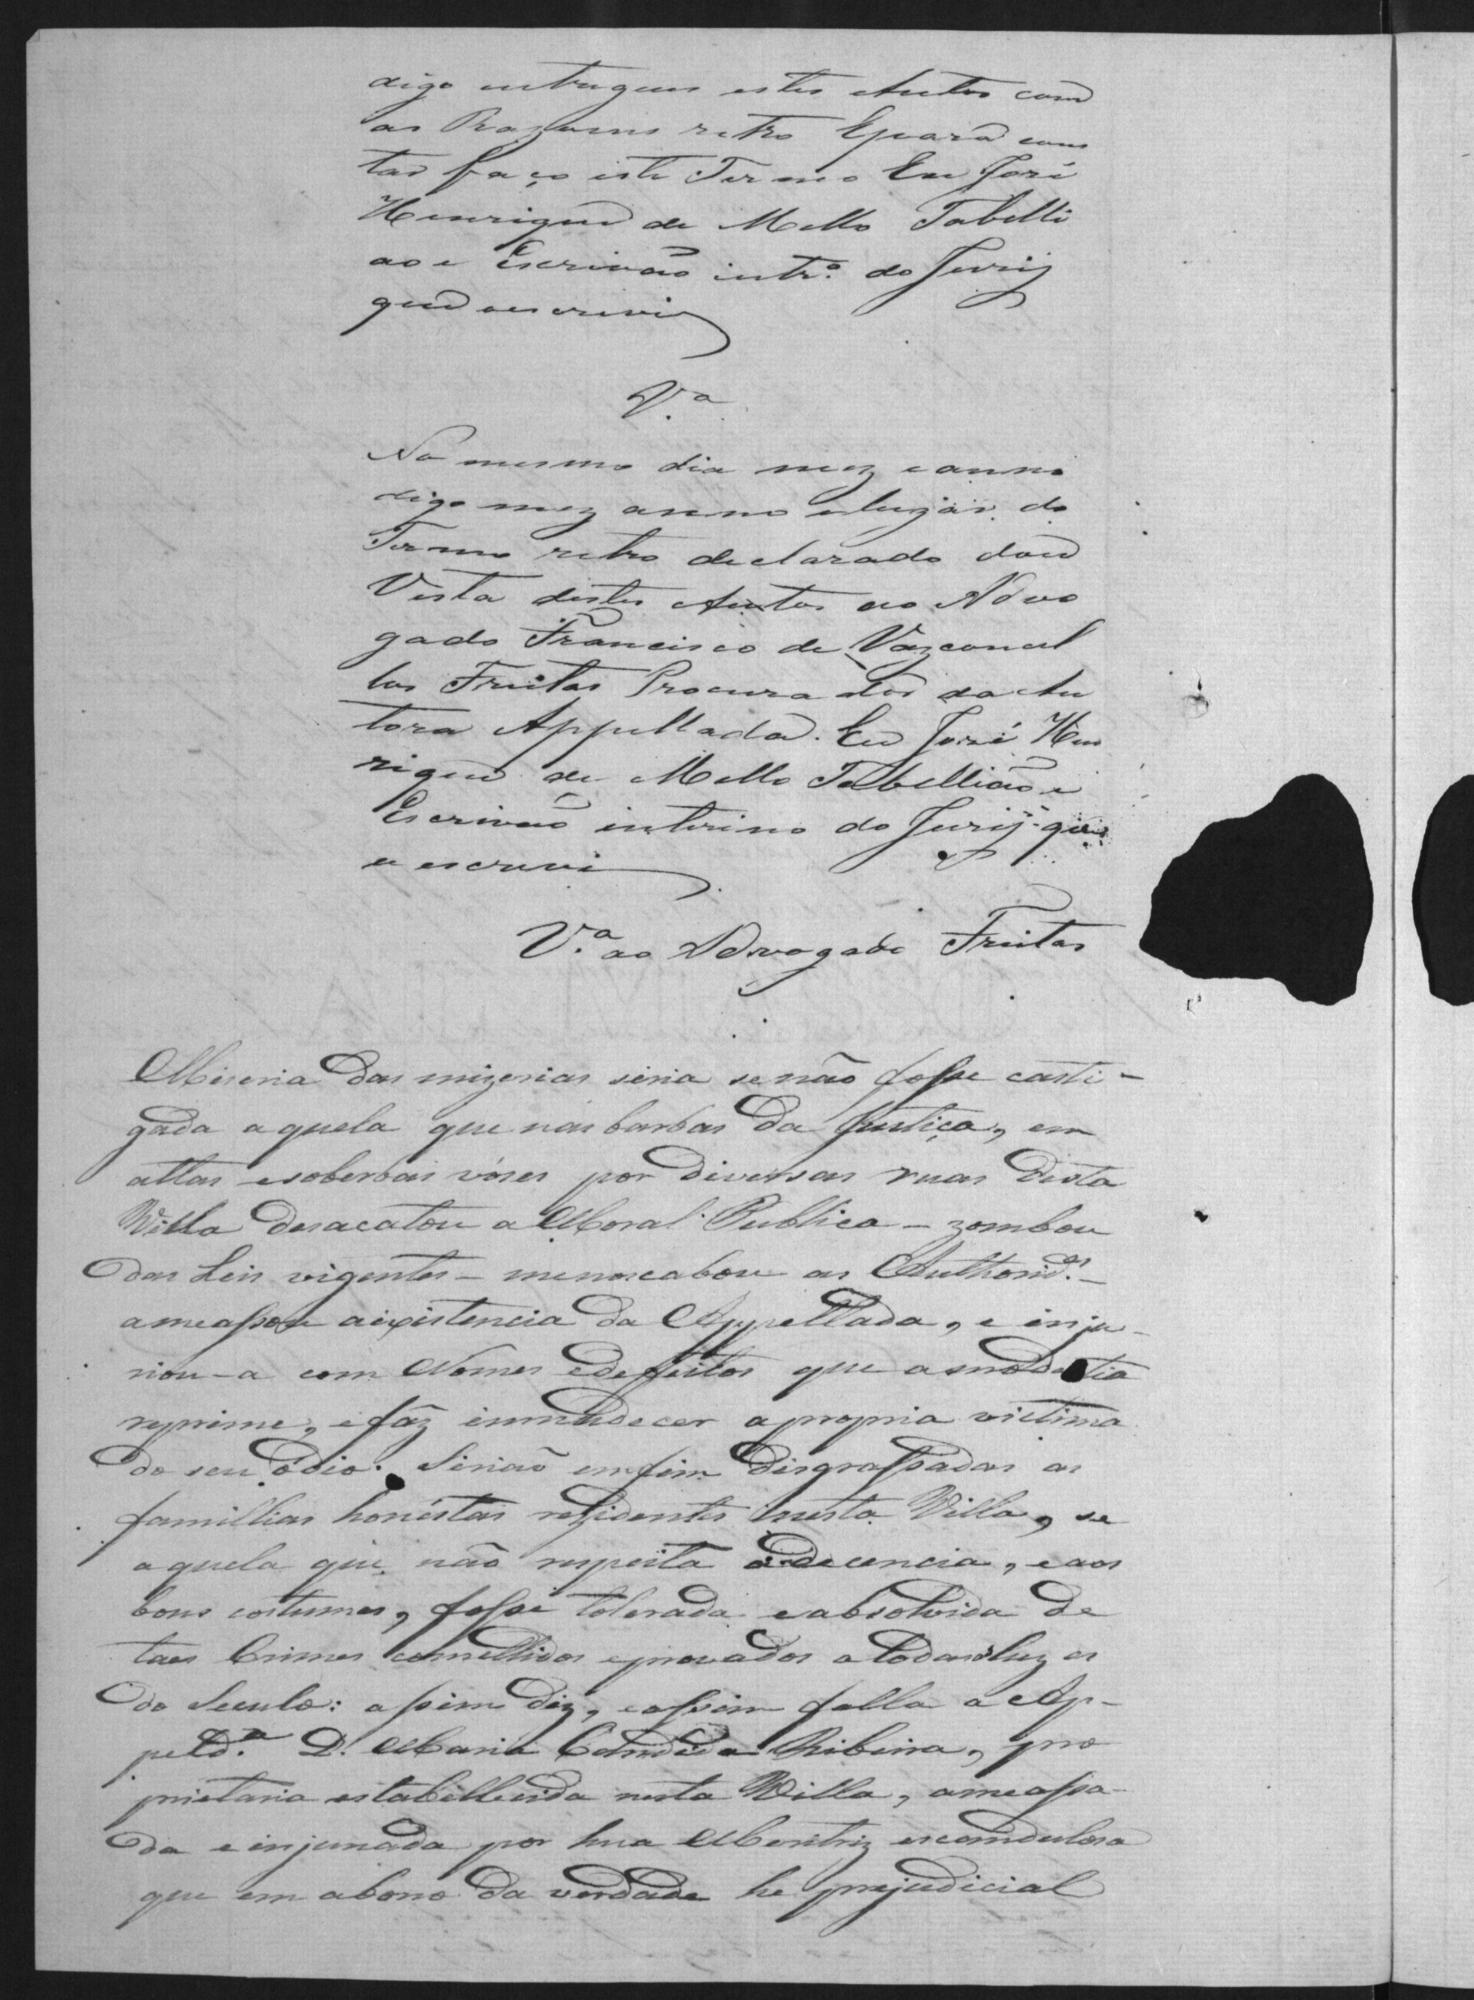 digo entregues estes Autos com
as Rasoens retro E para cons
tar faço este Termo Eu José
Henrique de Mello Tabelli
ao e Escrivão intr.º do Jury
que o escrevi
V.ª
No mesmo dia mez e anno
digo mez anno e lugar do
Termo retro declarado dou
Vista destes Autos ao Advo
gado Francisco de Vasconcel
los Freitas Procurador da Au
tora Appellada. Eu José Hen
rique de Mello Tabellião e
Escrivão interino do Jury que
o escrevi
V.ª ao Advogado Freitas
Miseria das mizerias seria se não fosse casti-
gada aquela que nas barbas da Justiça, em
altas e soberbas vózes por diversas ruas desta
Villa desacatou a Moral Publica - zombou
das Leis vigentes - menoscabou as Authorid.es -
ameassou a existencia da Appellada, e inju-
riou-a com Nomes e defeitos que a modestia
reprime, e fáz emmudecer a propria victima
do seu ódio. Serião emfim disgrassadas as
famillias honéstas residentes nesta Villa, se
aquela que não respeita a decencia, e aos
bons costumes, fosse tolerada e absolvida de
taes Crimes comettidos e provados a todas as luz es
do Seculo: assim diz, e assim falla a Ap-
pelld.ª D. Maria Candida Ribeira, pro
prietaria estabellecida nesta Villa, ameassa-
da e injuriada por hua Meritriz escandulosa
que em abono da verdade he prejudicial